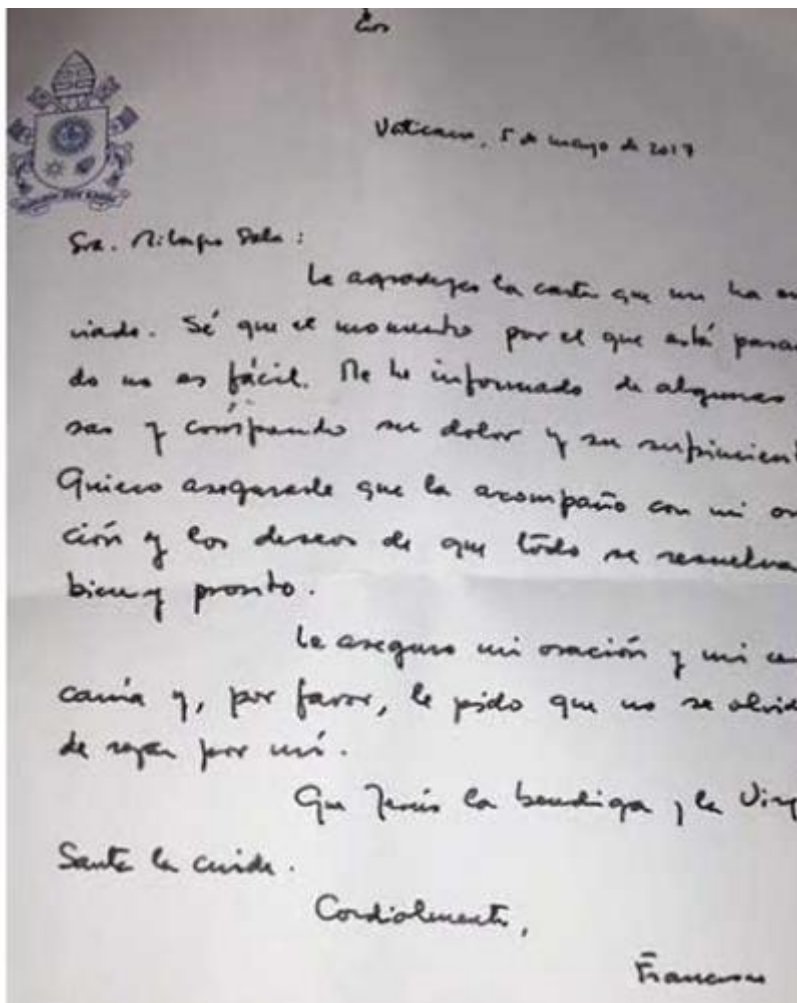 Vaticano, 5 de mayo de 2017
Sra. Milagro Sala :
Le agradezco la carta que me ha en
viado. Sé que el momento por el que está pasan
do no es fácil. Me he informado de algunas
sas y comprendo su dolor y su sufrimient
Quiero asegurarle que la acompaño con mi ora
ción y los deseos de que todo se resuelva
bien y pronto.
Le aseguro mi oración y mi cer
canía y, por favor, le pido que no se olvid
de rezar por mí.
Que Jesús la bendiga y la Virg
Santa la cuide.
Cordialmente,
Francisco